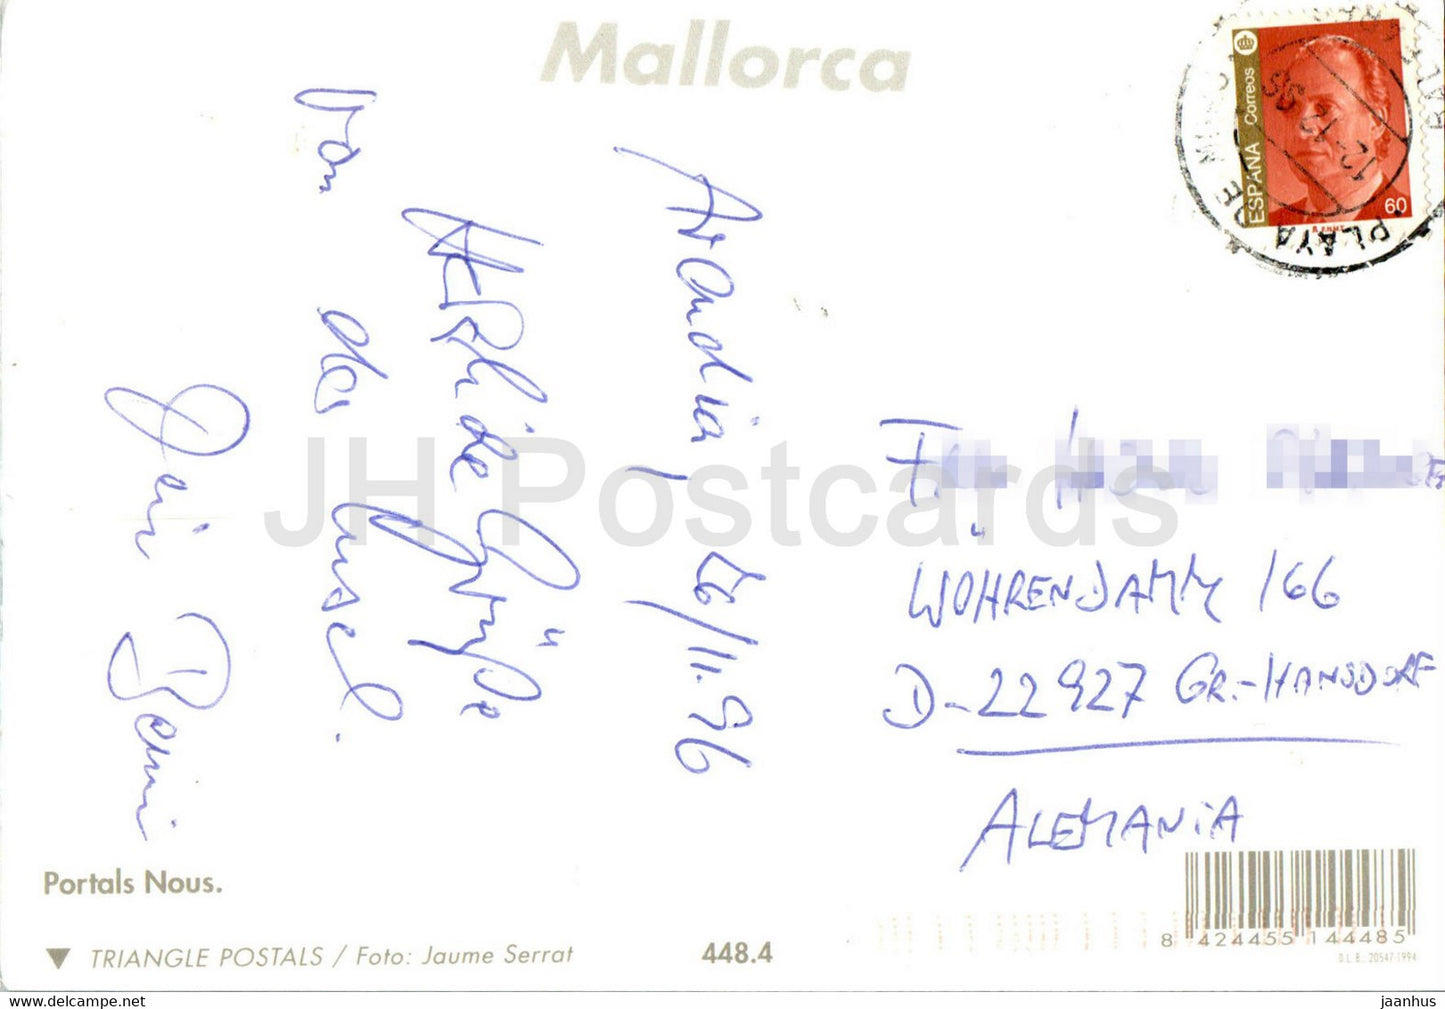 Mallorca
ESPAÑA Correos
60
PLAYA DE
Arandia, 26/11.96
Herzliche Grüße
von der Insel.
Dein Benni
WÖHRENDAMM 166
D-22927 GR.-HANSDORF
ALEMANIA
JH Postcards
Portals Nous.
TRIANGLE POSTALS / Foto: Jaume Serrat
448.4
8 424455 144485
D.L. B.: 20547-1994
www.delcampe.net
jaanhus